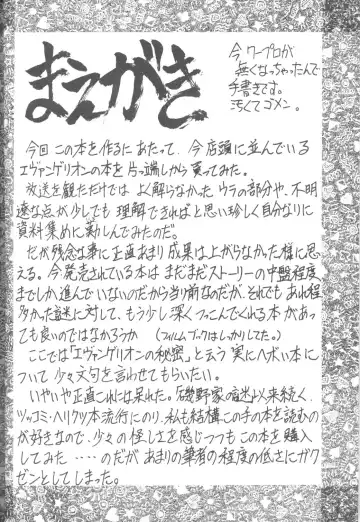 まえがき
今ワープロが
無くなっちゃったんで
手書きです。
汚くてゴメン。
今回この本を作るにあたって、今店頭に並んでいる
エヴァンゲリオンの本を片っ端しから買ってみた。
放送を観ただけでは よく解らなかったウラの部分や、不明
遼な点が少しでも 理解できればと思い珍しく自分なりに
資料集めに勤しんでみたのだ。
だが残念な事に正直あまり成果は上がらなかった様に思
える。今発売されている本は まだまだストーリーの中盤程度
までしか進んでいないのだから当り前なのだが、それでも あれ程
多かった謎に対して、もう少し深くつっこんでくれる本があって
も良いのではなかろうか (フィルムブックはしっかりしてた。)
ここでは「エヴァンゲリオンの秘密」と云う 実にヘボい本に
ついて 少々文句を言わせてもらいたい。
いやいや正直これには呆れた。磯野家の謎以来続く、
ツッコミ・ヘリクツ本流行にのり、私も結構この手の本を読むの
が好きなので、少々の怪しさを感じつつも この本を購入
してみた ‥‥のだが あまりの筆者の程度の低さにガク
ゼンとしてしまった。